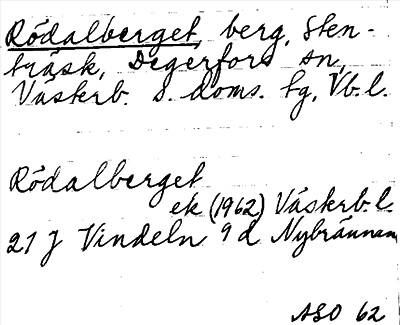 Rödalberget, berg, Sten-
träsk, Degerfors sn,
Västerb. s. doms. tg, Vb.l.
Rödalberget
ek (1962) Västerb.l.
21 J Vindeln 9 d Nybrännan
ASO 62